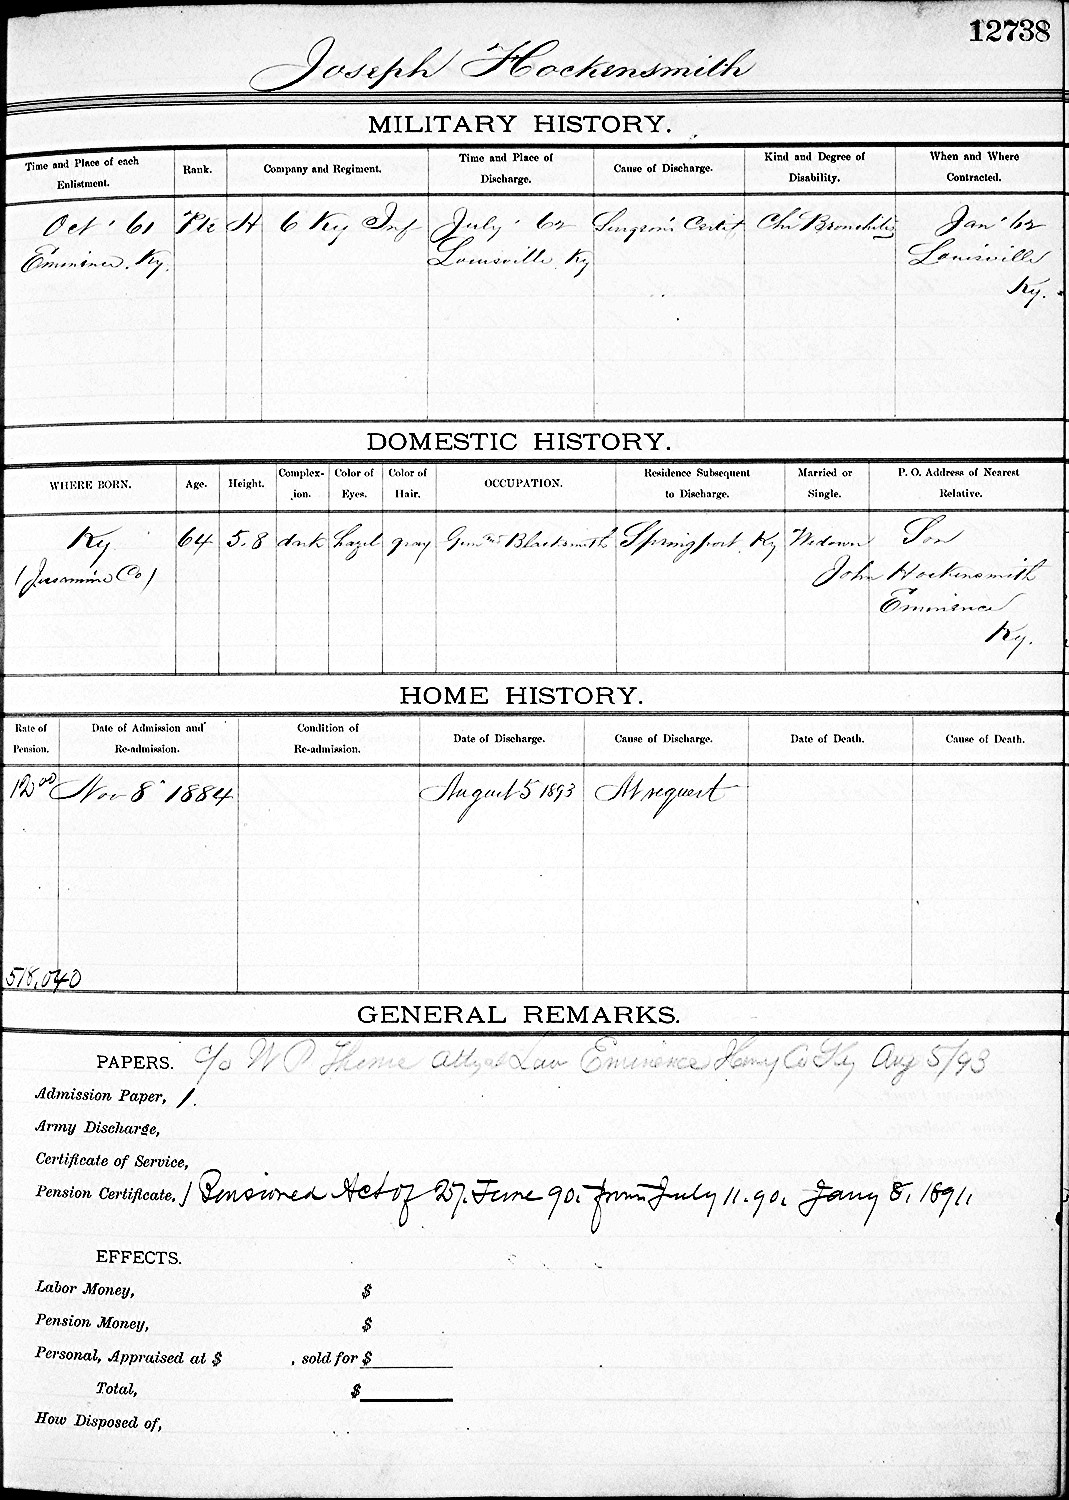 12738
Joseph Hockensmith
MILITARY HISTORY.
Time and Place of each Enlistment. Rank. Company and Regiment. Time and Place of Discharge. Cause of Discharge. Kind and Degree of Disability. When and Where Contracted.
Oct' 61 Pte H 6 Ky Inf July' 62 Surgeon's Certif Chr Bronchitis Jan' 62
Eminence. Ky. Louisville. Ky Louisville
Ky.
DOMESTIC HISTORY.
WHERE BORN. Age. Height. Complex-ion. Color of Eyes. Color of Hair. OCCUPATION. Residence Subsequent to Discharge. Married or Single. P. O. Address of Nearest Relative.
Ky 64 5.8 dark hazel gray Blacksmith Springport. Ky Widower Son
(Jessamine Co) John Hockensmith
Eminence
Ky.
HOME HISTORY.
Rate of Pension. Date of Admission and Re-admission. Condition of Re-admission. Date of Discharge. Cause of Discharge. Date of Death. Cause of Death.
12 00 Nov 8" 1884 August 5 1893 At request
518,040
GENERAL REMARKS.
PAPERS. c/o W P Thorne Atty at Law Eminence Henry Co Ky Aug 5/93
Admission Paper, 1.
Army Discharge,
Certificate of Service,
Pension Certificate. 1 Pensioned Act of 27. June 90. from July 11. 90. Jany 8. 1891.
EFFECTS.
Labor Money, $
Pension Money, $
Personal, Appraised at $ , sold for $
Total, $
How Disposed of,